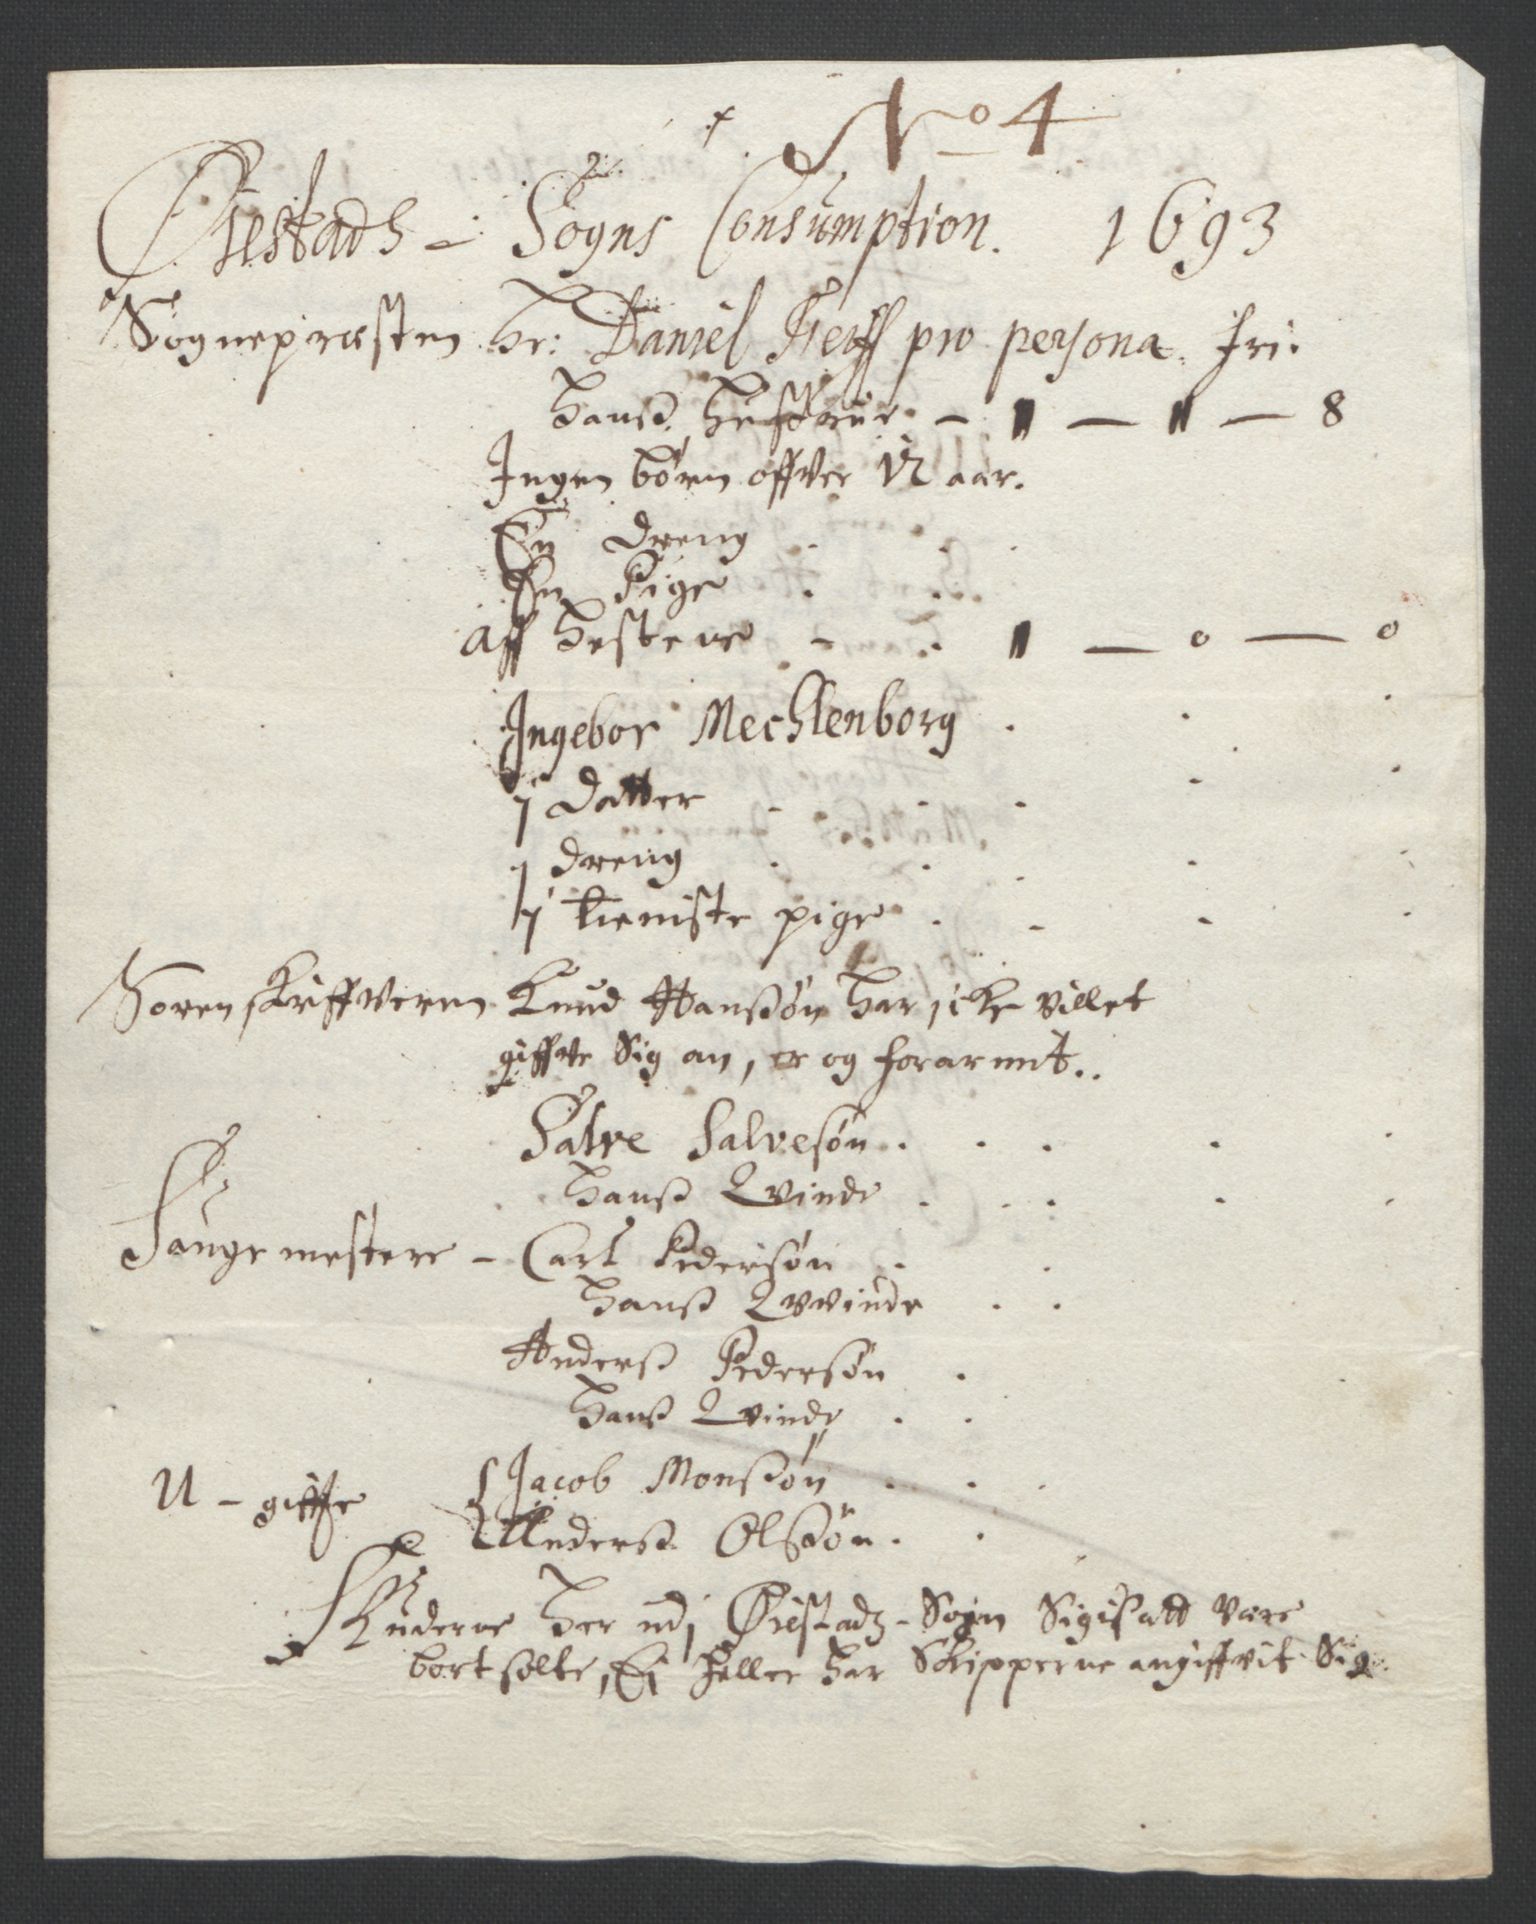 No 4
Øiestads - Sogns Consumption. 1693
Sognepræsten Hr: Daniel pro persona. fri.
Hanß Hustrue - 1 — 11 — 8
Ingen børn offver 12 aar.
En dreng
En Pige
Aff Hestene - 11 — 0 — 0
Ingebor Mechlenborg
1 datter
1 dreng
1 tieniste pige
Sorenskriffveren Knud Hanssøn har icke villet
giffve sig an, er og forarmit..
Salve Salvesøn
Hanß Qvinde
Saugemestere - Carl Pedersøn
Hanß Qvvinde
Anderß Pedersøn
Hanß Qvinde
U-giffte { Jacob Monssøn
Anderß Olssøn.
Skuderne her udj Øiestadz-Sogn Sigis att være
bortsolte, Ei heller har Skipperne angiffvit Sig.